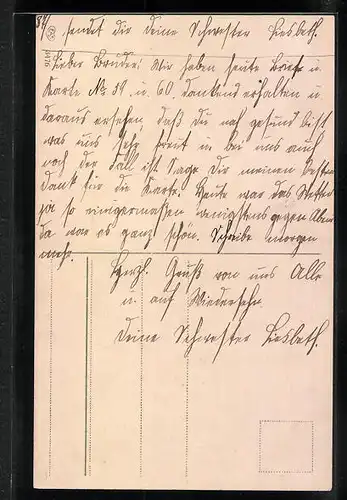 sendet dir deine Schwester Liesbeth.
Lieber Bruder! Wir haben heute Brief u.
Karte No 59. u. 60. dankend erhalten u.
daraus ersehen, daß du noch gesund bist
was uns sehr freut u. bei uns auch
noch der Fall ist. Sage dir meinen besten
Dank für die Karte. Heute war das Wetter
ja so einigermaßen wenigstens gegen Abend
da war es ganz schön. Schreibe morgen
mehr.
Herzl. Gruß von uns Alle
u. auf Wiedersehn.
deine Schwester Liesbeth.